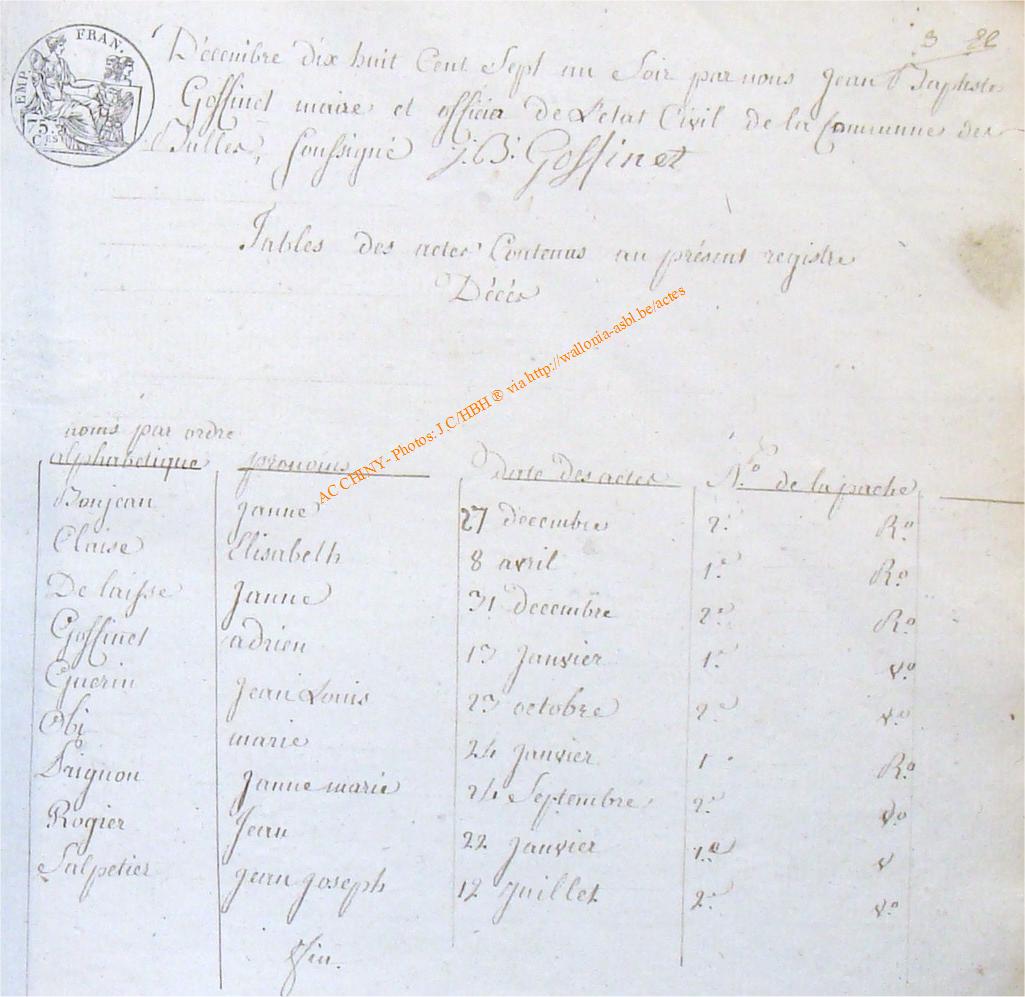 EMP. FRAN.
75
CES
3 22
Décembre dix huit Cent Sept au Soir par nous Jean Baptiste
Goffinet maire et officier de L'etat Civil de la Commune des
Bulles, Soussigné J. B. Goffinet
Tables des actes Contenus au présent registre
Décès
AC CHINY - Photos: J C/HBH ® via http://wallonia-asbl.be/actes
noms par ordre
alphabetique prenoms date des actes N.º de la pache
Bonjean Janne 27 decembre 2.e R.º
Claise Elisabeth 8 avril 1.e R.º
De laisse Janne 31 decembre 2.e R.º
Goffinet adrien 13 Janvier 1.e v.º
Guerin Jean Louis 23 octobre 2.e v.º
Obi marie 24 Janvier 1 R.º
Paignon Janne marie 24 Septembre 2.e v.º
Rogier Jean 22 Janvier 1.e v
Salpetier Jean Joseph 12 Juillet 2.e v.º
fin.